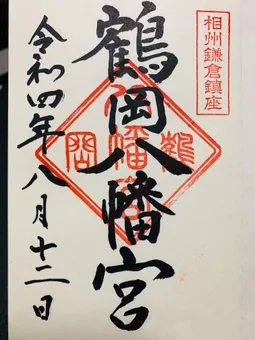 相州鎌倉鎮座
鶴岡八幡宮
令和四年八月十二日